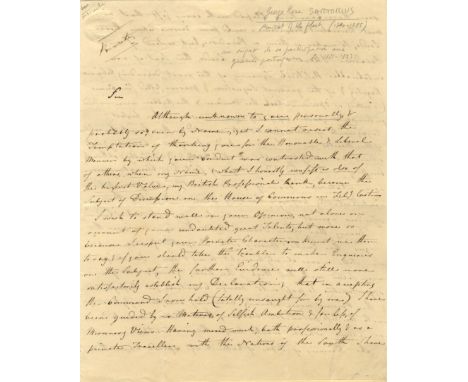 George Rose SARTORIUS
Admiral of the fleet (1790-1885)
Private
Sir
Although unknown to you personally &
probably so even by Name, yet I cannot resist the
Temptation of thanking you for the Honorable & Liberal
Manner by which your Conduct was contrasted with that
of others when my Name, & what I honestly confess is also of
the highest Value, my British Professional Rank, became the
Subject of Discussion in the House of Commons in Feby last
I wish to stand well in your Opinion, not alone on
account of your undoubted great Talents, but more so
because I respect your Private Character
say; if you should take the Trouble to make Enquiries
on the Subject, the further Evidence will still more
satisfactorily establish my Declaration, that in accepting
the Command I now hold (totally unsought for by me) I have
been guided by no Motives of Selfish Ambition & far less of
Mercenary Views. Having mixed much, both professionally & as a
private Traveller with the Natives of the South I have